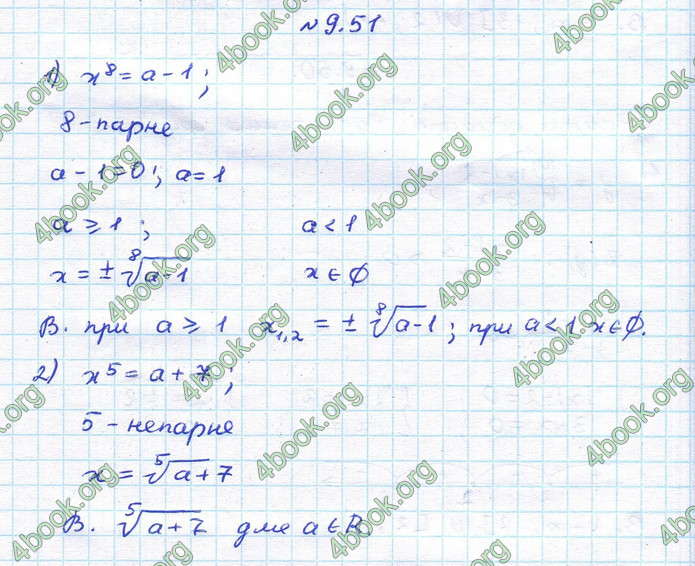 № 9.51
1) x⁸ = a - 1;
8 - парне
a - 1 = 0; a = 1
a ≥ 1; a < 1
x = ± ⁸√(a-1) x ∈ ∅
В. при a ≥ 1 x₁,₂ = ± ⁸√(a-1); при a < 1 x ∈ ∅.
2) x⁵ = a + 7;
5 - непарне
x = ⁵√(a+7)
В. ⁵√(a+7) для a ∈ R
4book.org